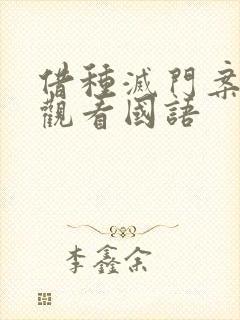 借種滅門案
觀看國語
李鑫余